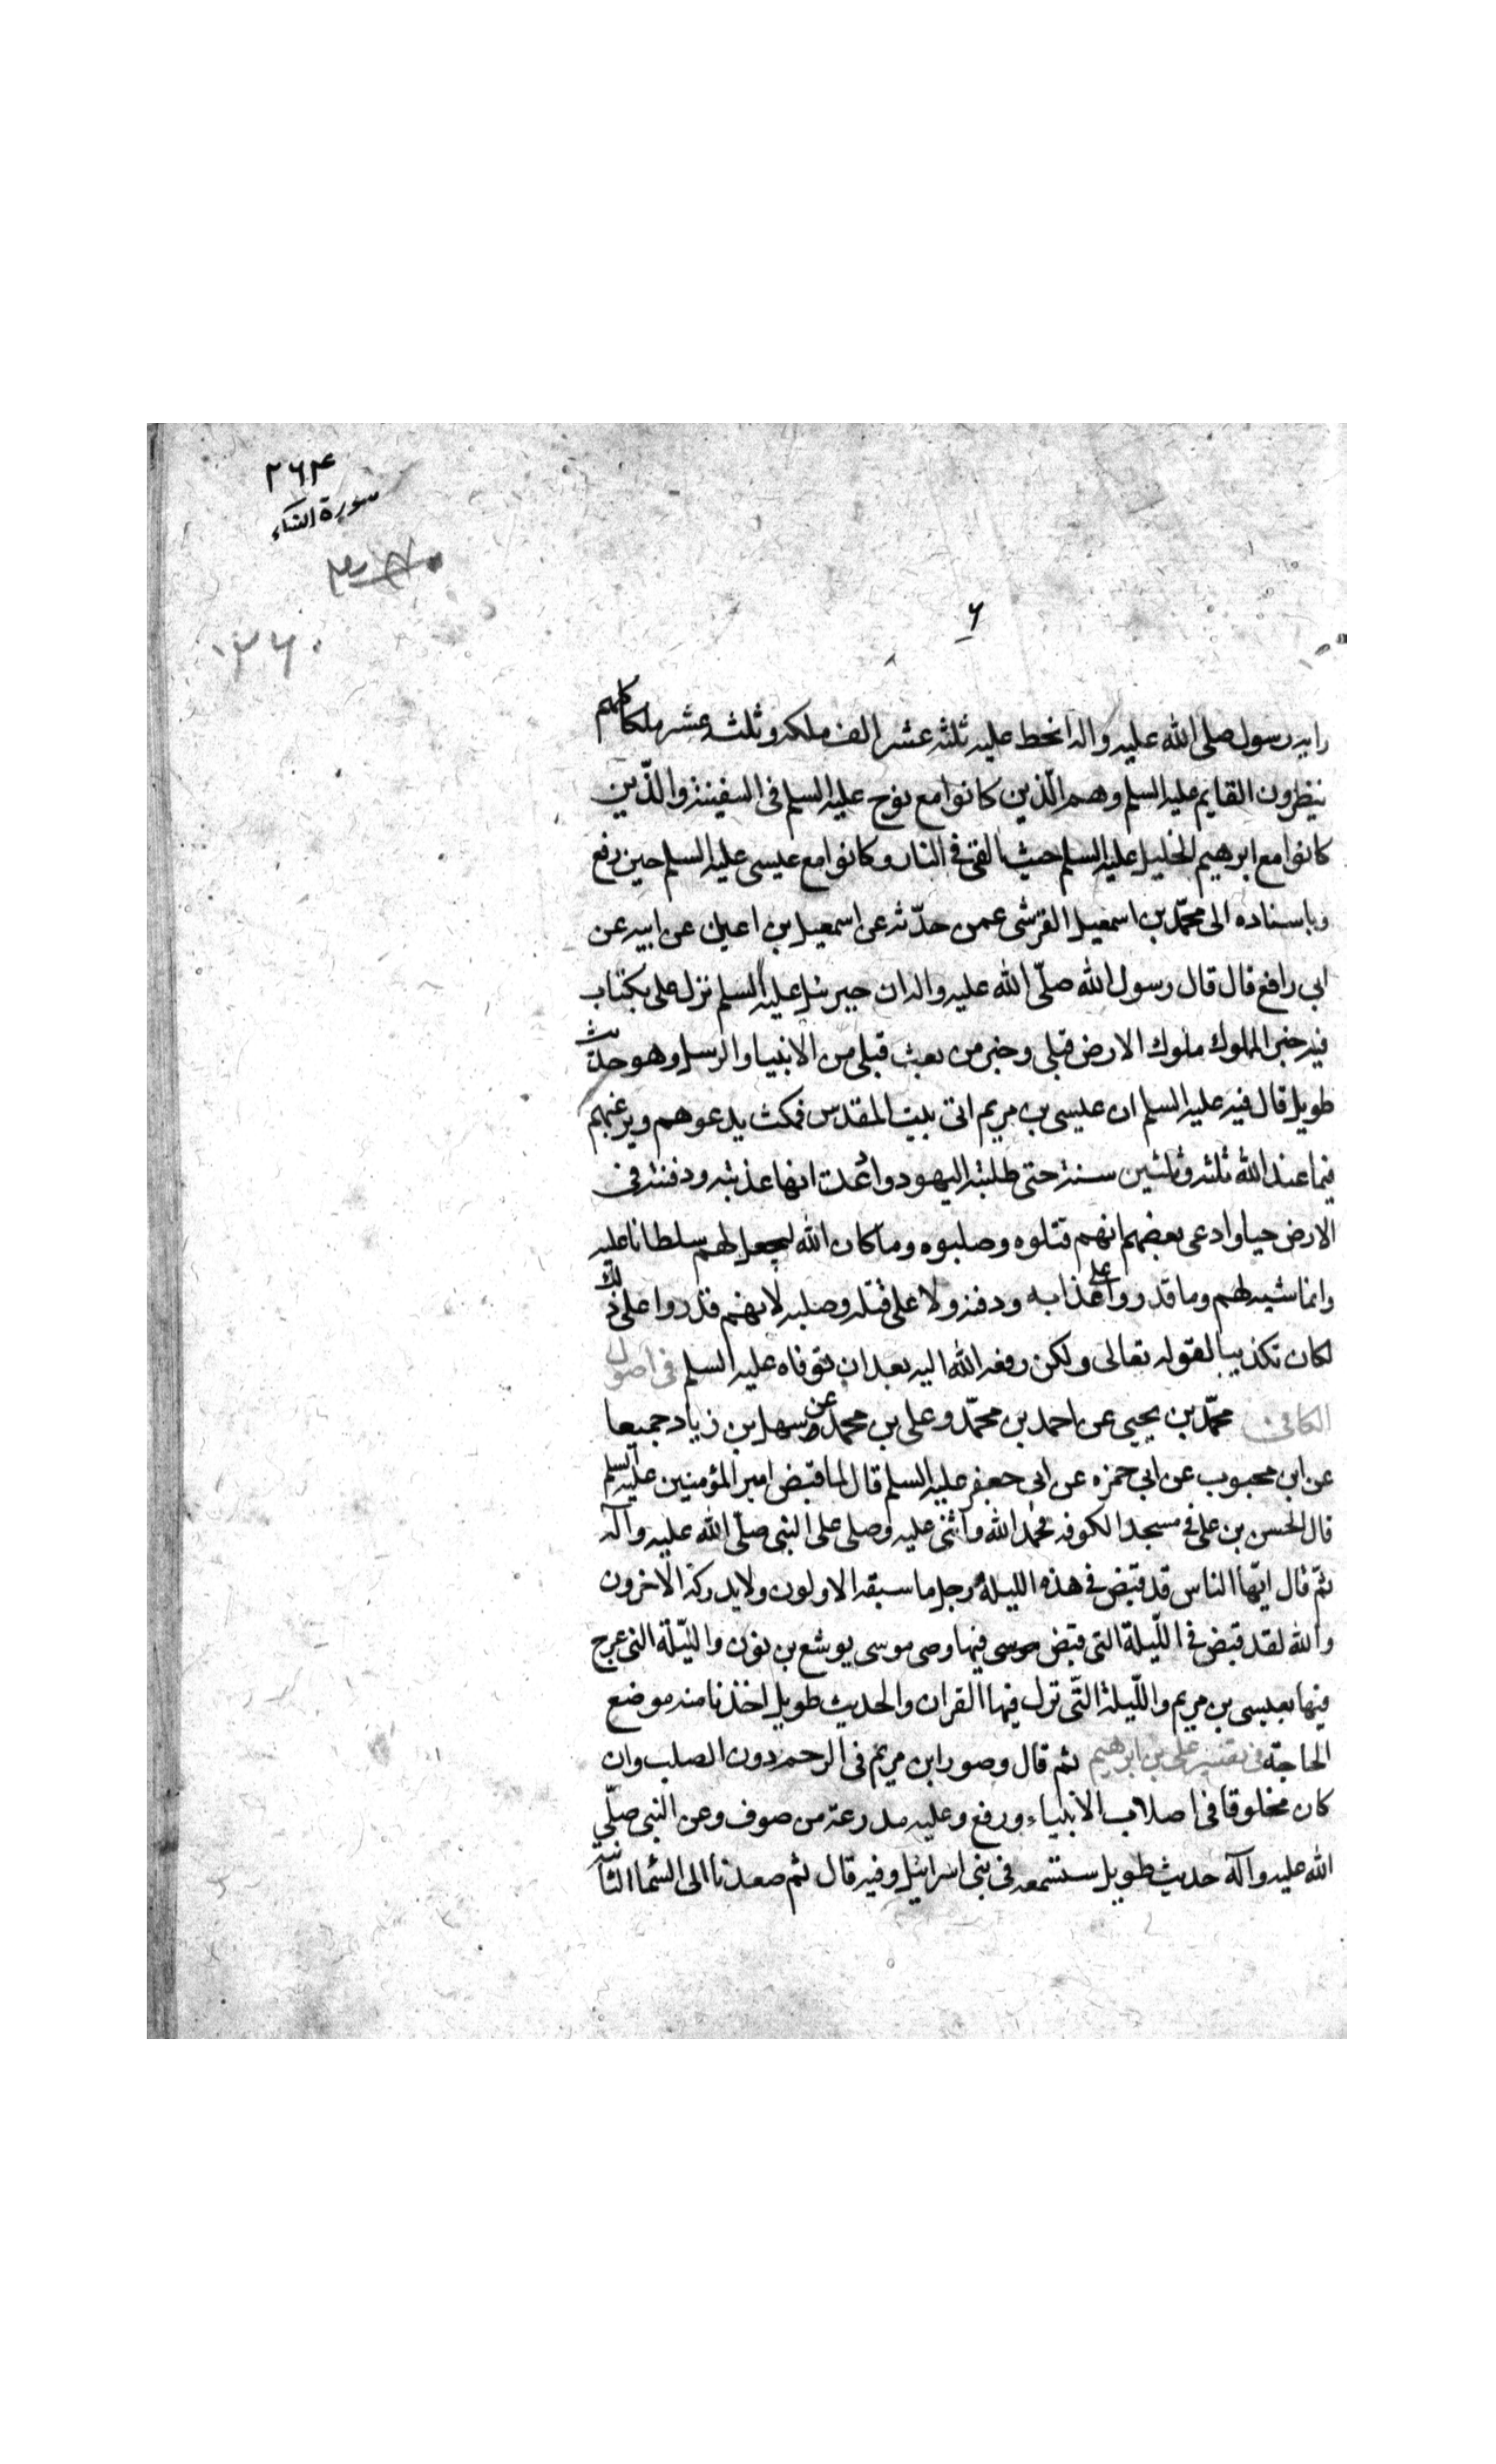 ٢٦٤
سورة النساء
١٣٦٠
٦
راية رسول صلى الله عليه واله انحط عليه ثلثة عشر الف ملكه وثلثه عشر ملكا كلهم
ينظرون القايم عليه السلم وهم الّذين كانوا مع نوح عليه السلم فى السفينة والذّين
كانوا مع ابرهيم الخليل عليه السلم حيث القى فى النار وكانوا مع عيسى عليه السلم حين رفع
وباسناده الى محمّد بن اسمعيل القرشى عمن حدّثه عن اسمعيل بن اعين عن ابيه عن
ابى رافع قال قال رسول الله صلّى الله عليه واله ان جبرئيل عليه السلم نزل على بكتاب
فيه خبر الملوك ملوك الارض قبلى وخبر من بعث قبلى من الانبيا والرسل وهو حديث
طويل قال فيه عليه السلم ان عيسى بن مريم اتى بيت المقدس فمكث يدعوهم ويرغبهم
فيما عند الله ثلثة وثلثين سنة حتى طلبته اليهود وادّعت انها عذبته ودفنته فى
الارض حيا وادعى بعضهم انهم قتلوه وصلبوه وما كان الله ليجعل لهم سلطانا عليه
وانما شبه لهم وما قدروا على عذابه ودفنه ولا على قتله وصلبه لانهم قدروا على ذلك
لكان تكذيبا لقوله تعالى ولكن رفعه الله اليه بعد ان توفاه عليه السلم فى اصول
الكافى محمّد بن يحيى عن احمد بن محمّد وعلى بن محمد عن سهل بن زياد جميعا
عن ابن محبوب عن ابى حمزه عن ابى جعفر عليه السلم قال لما قبض امير المؤمنين عليه السلم
قال الحسن بن على فى مسجد الكوفه فحمد الله واثنى عليه وصلى على النبى صلّى الله عليه وآله
ثمّ قال ايّها الناس قد قبض فى هذه الليلة رجل ما سبقه الاولون ولا يدركه الآخرون
والله لقد قبض فى اللّيلة التى قبض موسى فيها وصى موسى يوشع بن نون واللّيلة التى عرج
فيها بعيسى بن مريم واللّيلة التّى نزل فيها القران والحديث طويل اخذنا منه موضع
الحاجة فى تفسير على بن ابرهيم ثم قال وصور ابن مريم فى الرحم دون الصلب وان
كان مخلوقا فى اصلاب الانبياء ورفع وعليه مدرعة من صوف وعن النبى صلّى
الله عليه وآله حديث طويل ستسمعه فى بنى اسرائيل وفيه قال ثم صعدنا الى السّما الثانية